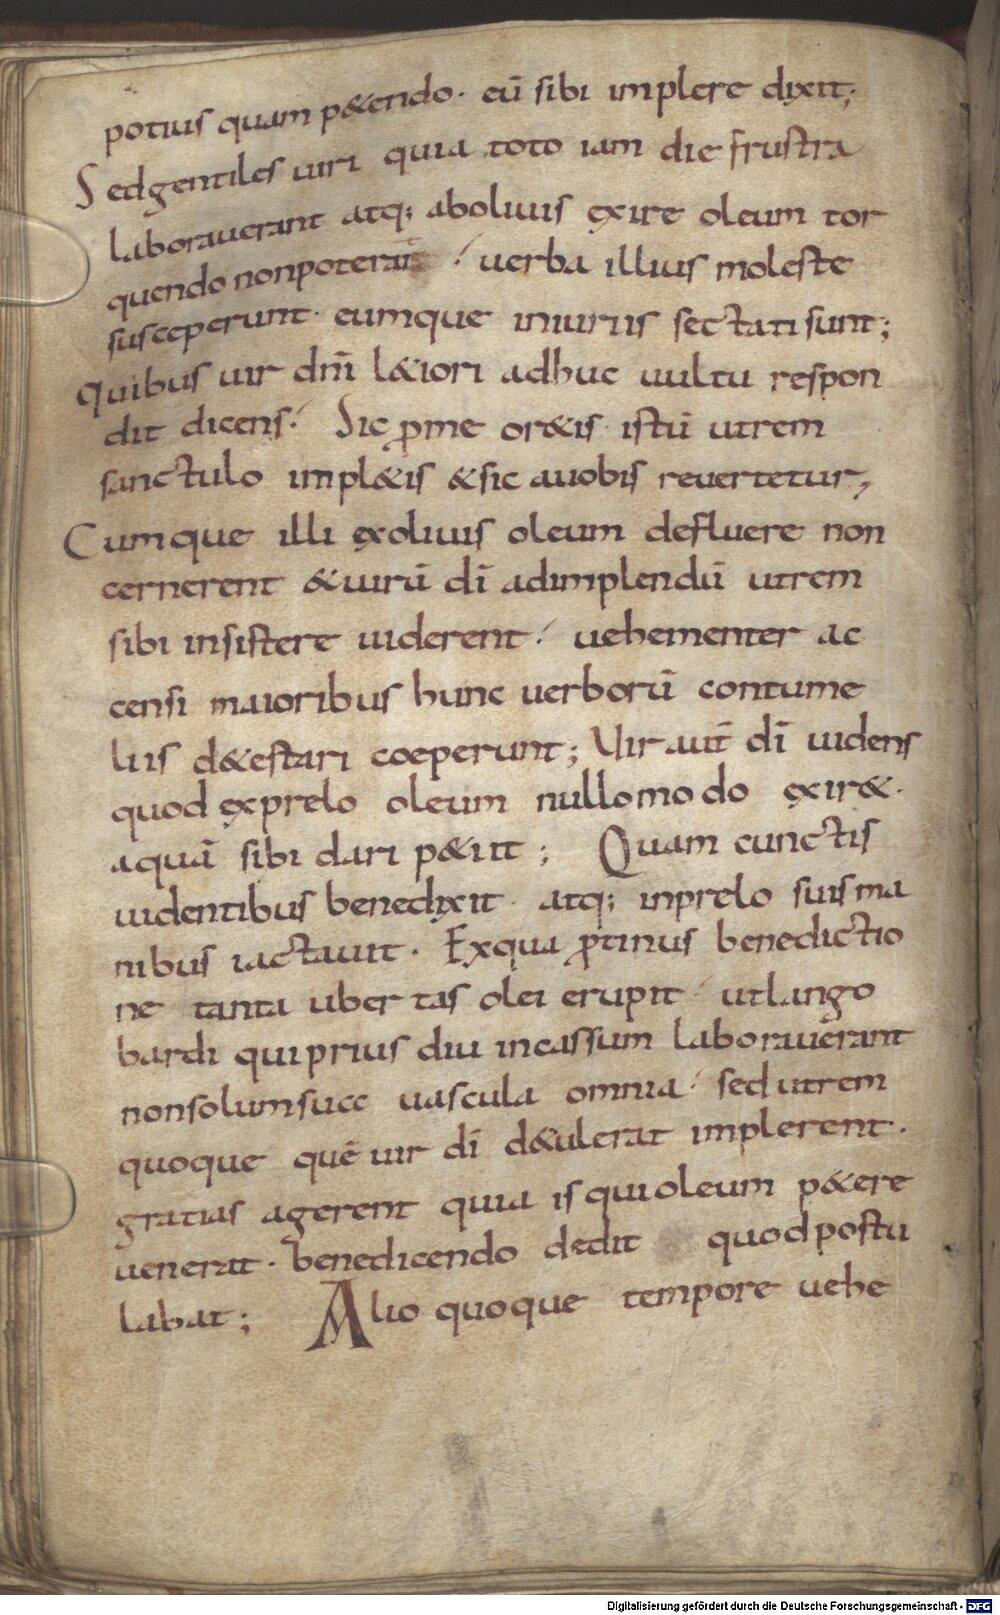 potius quam p&endo· eū sibi implere dixit;
Sed gentiles uiri quia toto iam die frustra
laborauerant atq; ab oliuis exire oleum tor
quendo non poterant uerba illius moleste
susceperunt· eumque iniuriis sectati sunt;
Quibus uir dnī l&iori adhuc uultu respon
dit dicens· Sic ꝓ me or&is istū utrem
sanctulo impl&is & sic a uobis reuertetur,
Cumque illi ex oliuis oleum defluere non
cernerent & uirū dī ad implendū utrem
sibi insistere uiderent· uehementer ac
censi maioribus hunc uerborū contume
liis d&estari coeperunt; Uir aut̄ dī uidens
quod ex prelo oleum nullo modo exir&·
aquā sibi dari p&iit; Quam cunctis
uidentibus benedixit· atq; in prelo suis ma
nibus iactauit· Ex qua ꝓtinus benedictio
ne tanta ubertas olei erupit ut lango
bardi qui prius diu incassum laborauerant
non solum sua uascula omnia· sed utrem
quoque quē uir dī d&ulerat implerent·
gratias agerent quia is qui oleum p&ere
uenerat· benedicendo dedit quod postu
labat; Alio quoque tempore uehe
Digitalisierung gefördert durch die Deutsche Forschungsgemeinschaft - DFG